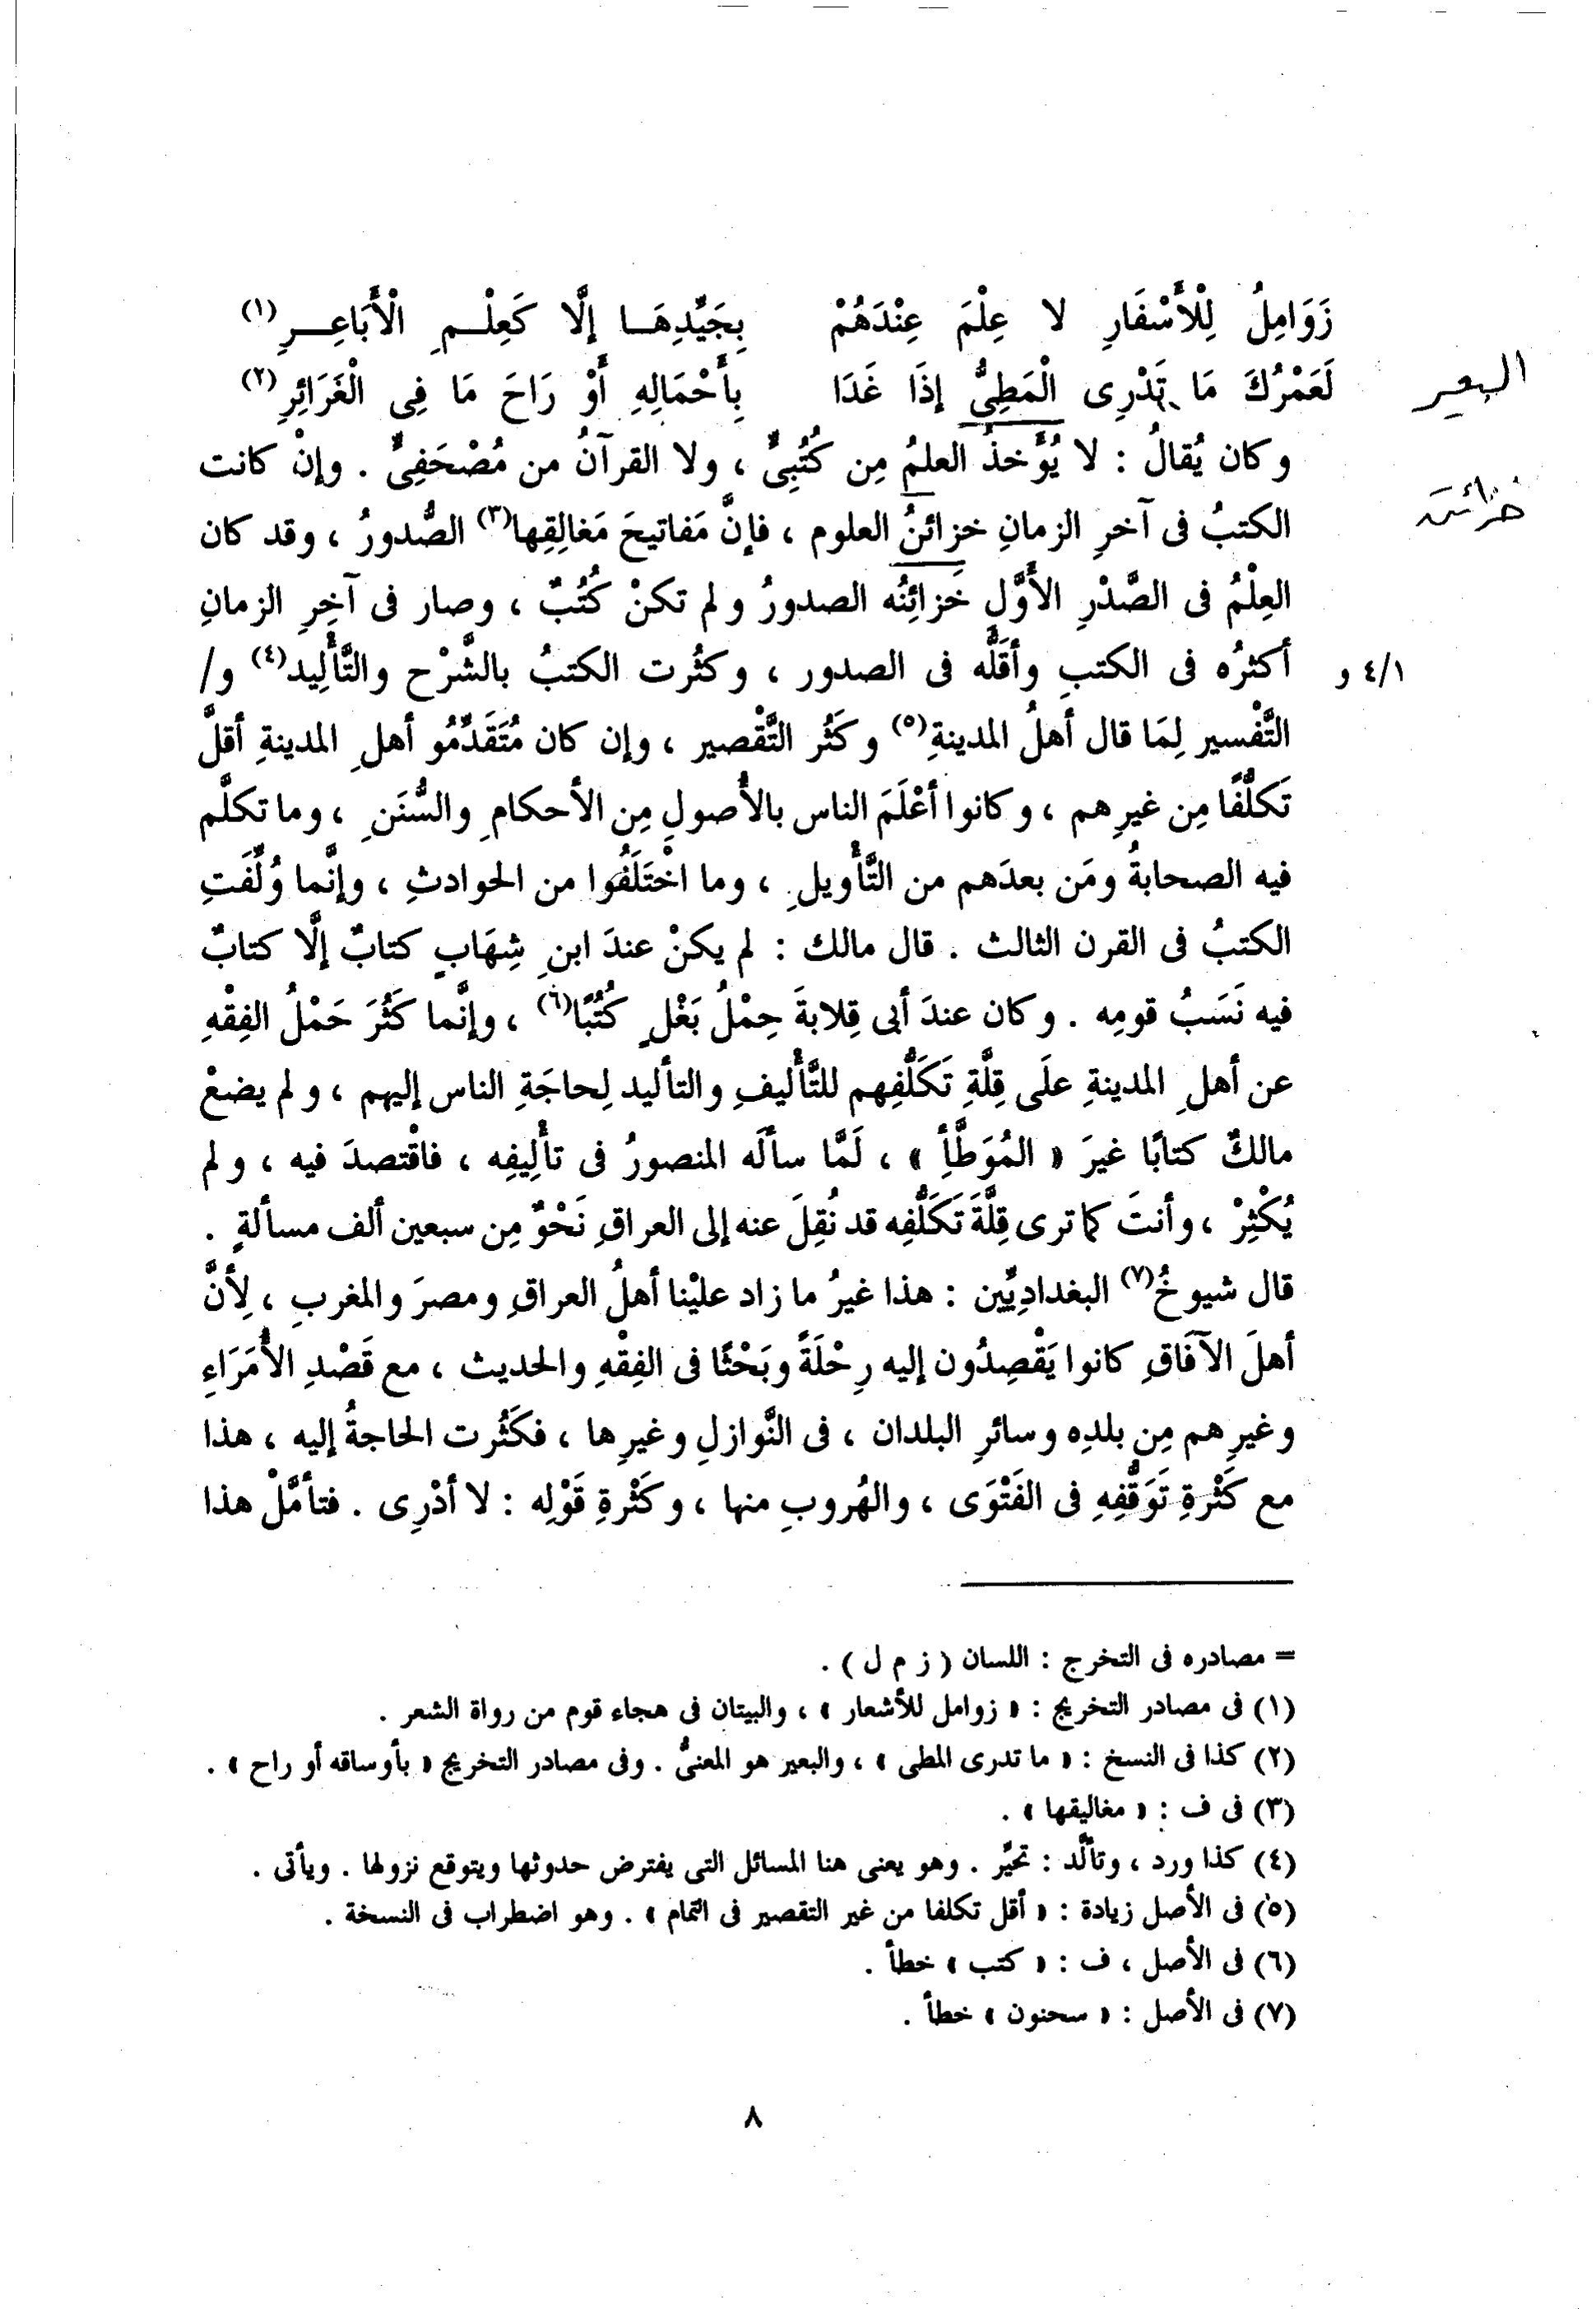 زَوَامِلُ لِلْأَسْفَارِ لا عِلْمَ عِنْدَهُمْ بِجَيِّدِهَــا إِلَّا كَعِلْــمِ الْأَبَاعِــرِ(١)
لَعَمْرُكَ مَا تَدْرِى الْمَطِيُّ إِذَا غَدَا بِأَحْمَالِهِ أَوْ رَاحَ مَا فِى الْغَرَائِرِ(٢)
البعير
وكان يُقالُ : لا يُؤَخذُ العلمُ مِن كُتُبِىٍّ ، ولا القرآنُ من مُصْحَفِىٍّ . وإنْ كانت
خزائن
الكتبُ فى آخرِ الزمانِ خزائنُ العلوم ، فإنَّ مَفاتيحَ مَغالِقِها(٣) الصُّدورُ ، وقد كان
العِلْمُ فى الصَّدْرِ الأَوَّلِ خَزائِنُه الصدورُ ولم تكنْ كُتُبٌ ، وصار فى آخِرِ الزمانِ
أكثرُه فى الكتبِ وأقَلُّه فى الصدور ، وكثُرت الكتبُ بالشَّرْح والتَّأْلِيد(٤) و/ ٤/١ و
التَّفْسير لِمَا قال أهلُ المدينةِ(٥) وكَثُر التَّقْصير ، وإن كان مُتَقَدِّمُو أهلِ المدينةِ أقلَّ
تَكلُّفًا مِن غيرِهم ، وكانوا أعْلَمَ الناس بالأُصولِ مِن الأحكامِ والسُّنَنِ ، وما تكلَّم
فيه الصحابةُ ومَن بعدَهم من التَّأْويلِ ، وما اخْتَلَفُوا من الحوادثِ ، وإنَّما وُلِّفَتِ
الكتبُ فى القرن الثالث . قال مالك : لم يكنْ عندَ ابنِ شِهَابٍ كتابٌ إلَّا كتابٌ
فيه نَسَبُ قومِه . وكان عندَ أبى قِلابةَ حِمْلُ بَغْلٍ كُتُبًا(٦) ، وإنَّما كَثُرَ حَمْلُ الفِقْهِ
عن أهلِ المدينةِ علَى قِلَّةِ تَكَلُّفِهم للتَّأْليفِ والتأليد لِحاجَةِ الناس إليهم ، ولم يضعْ
مالكٌ كتابًا غيرَ « المُوَطَّأِ » ، لَمَّا سألَه المنصورُ فى تأْلِيفِه ، فاقْتصدَ فيه ، ولم
يُكْثِرْ ، وأنتَ كما ترى قِلَّةَ تَكَلُّفِه قد نُقِلَ عنه إلى العراقِ نَحْوٌ مِن سبعين ألف مسألةٍ .
قال شيوخُ(٧) البغدادِيِّين : هذا غيرُ ما زاد عليْنا أهلُ العراقِ ومصرَ والمغربِ ، لِأنَّ
أهلَ الآفَاقِ كانوا يَقْصِدُون إليه رِحْلَةً وبَحْثًا فى الفِقْهِ والحديث ، مع قَصْدِ الأُمَرَاءِ
وغيرِهم مِن بلدِه وسائرِ البلدان ، فى النَّوازلِ وغيرِها ، فكَثُرت الحاجةُ إليه ، هذا
مع كَثْرةِ تَوَقُّفِهِ فى الفَتْوَى ، والهُروبِ منها ، وكَثْرةِ قَوْلِه : لا أدْرِى . فتأمَّلْ هذا
= مصادره فى التخرج : اللسان ( ز م ل ) .
(١) فى مصادر التخريج : « زوامل للأشعار » ، والبيتان فى هجاء قوم من رواة الشعر .
(٢) كذا فى النسخ : « ما تدرى المطى » ، والبعير هو المعنىُّ . وفى مصادر التخريج « بأوساقه أو راح » .
(٣) فى ف : « مغاليقها » .
(٤) كذا ورد ، وتألَّد : تحيَّر . وهو يعنى هنا المسائل التى يفترض حدوثها ويتوقع نزولها . ويأتى .
(٥) فى الأصل زيادة : « أقل تكلفا من غير التقصير فى التمام » . وهو اضطراب فى النسخة .
(٦) فى الأصل ، ف : « كتب » خطأ .
(٧) فى الأصل : « سحنون » خطأ .
٨